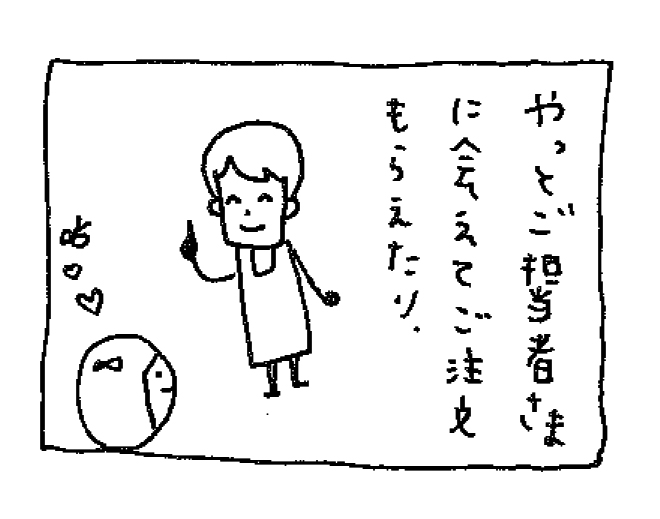 やっとご担当者さま
に会えてご注文
もらえたり、